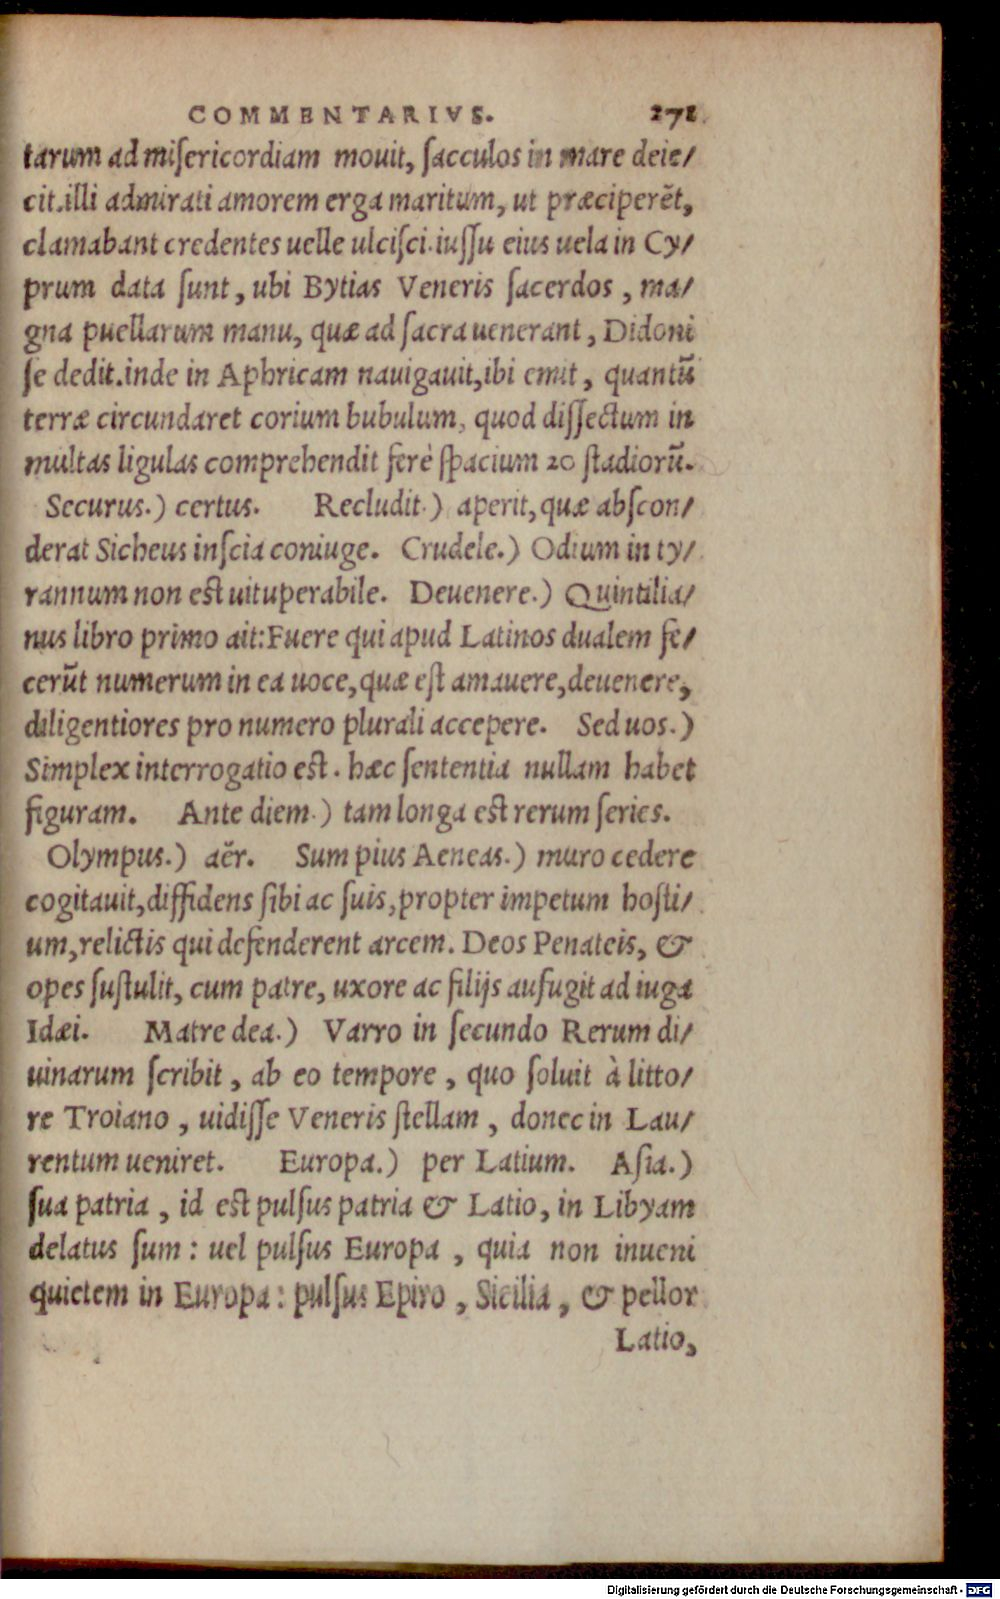 COMMENTARIVS. 271
tarum ad miſericordiam mouit, ſacculos in mare deie/
cit. illi admirati amorem erga maritum, ut præciperẽt,
clamabant credentes uelle ulciſci. iuſſu eius uela in Cy/
prum data ſunt, ubi Bytias Veneris ſacerdos, ma/
gna puellarum manu, quæ ad ſacra uenerant, Didoni
ſe dedit. inde in Aphricam nauigauit, ibi emit, quantũ
terræ circundaret corium bubulum, quod diſſectum in
multas ligulas comprehendit ferè ſpacium 20 ſtadiorũ.
Securus.) certus. Recludit.) aperit, quæ abſcon/
derat Sicheus inſcia coniuge. Crudele.) Odium in ty/
rannum non eſt uituperabile. Deuenere.) Quintilia/
nus libro primo ait: Fuere qui apud Latinos dualem fe/
cerũt numerum in ea uoce, quæ eſt amauere, deuenere,
diligentiores pro numero plurali accepere. Sed uos.)
Simplex interrogatio eſt. hæc ſententia nullam habet
figuram. Ante diem.) tam longa eſt rerum ſeries.
Olympus.) aër. Sum pius Aeneas.) muro cedere
cogitauit, diffidens ſibi ac ſuis, propter impetum hoſti/
um, relictis qui defenderent arcem. Deos Penateis, &
opes ſuſtulit, cum patre, uxore ac filijs aufugit ad iuga
Idæi. Matre dea.) Varro in ſecundo Rerum di/
uinarum ſcribit, ab eo tempore, quo ſoluit à litto/
re Troiano, uidiſſe Veneris ſtellam, donec in Lau/
rentum ueniret. Europa.) per Latium. Aſia.)
ſua patria, id eſt pulſus patria & Latio, in Libyam
delatus ſum: uel pulſus Europa, quia non inueni
quietem in Europa: pulſus Epiro, Sicilia, & pellor
Latio,
Digitalisierung gefördert durch die Deutsche Forschungsgemeinschaft - DFG